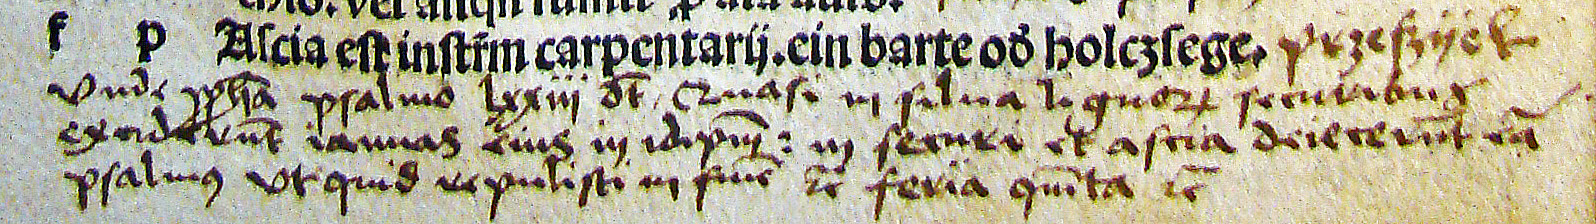 f p Aſcia eſt inſtrm̄ carpentarij. ein barte od̕ holczſege. przeszyek
Vnde ꝓpħa psalmo lxxiii dt̄. Quasi in silua lignoꝝ securibus
exciderunt ianuas eius in idipm̄: in securi et ascia deiecerunt eā
psalmus Vt quid repulisti in finē ⁊c̄ feria quīta ⁊c̄